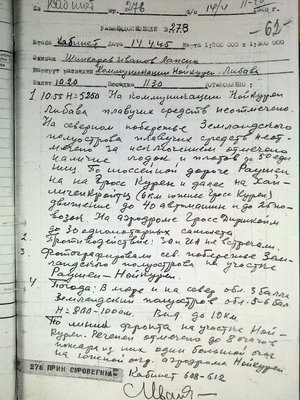 Кабинет 278 14/4
РАЗВЕДДОНЕСЕНИЕ № 278 -62-
Штаб Кабинет Дата 14.4.45 Карта 1:200 000 и 1:500 000
Экипаж Шикаров Иванов
Маршрут разведки Коммуникации Нойкурен-Либава
Взлет 10.30 Посадка 11.30
1 10.55 Н=5250 На коммуникации Нойкурен
Либава плавучих средств неотмечено
На северном побережье Земландского
полуострова плавучих средств неот-
мечено за исключением отмечено
наличие лодок и плотов до 50 еди
ниц. По шоссейной дороге Раушен
на Гросс Курен и далее на
(6 км. южнее Гросс Курен)
движение до 40 автомашин и до 20 по-
возок. На аэродроме Гросс Диршкайм
до 30 одномоторных самолета
2 Противодействие: ЗА и ИА не встречали.
3 Фотографировали сев. побережье Зем-
ландского полуострова на участке
Раушен - Нойкурен.
4 Погода: В море и на север обл. 3 балла
Земландский полуостров обл. 5-6 бал
Н= 800-1000м. Вид. до 10км
По линии фронта на участке Ной-
Курен. Регенен отмечено до 8 очагов
пожара из них один большой очаг
на южной окр. аэродрома Нойкурен
Кабинет 608-612
276 ПРИН СЫРОВЕГИНА